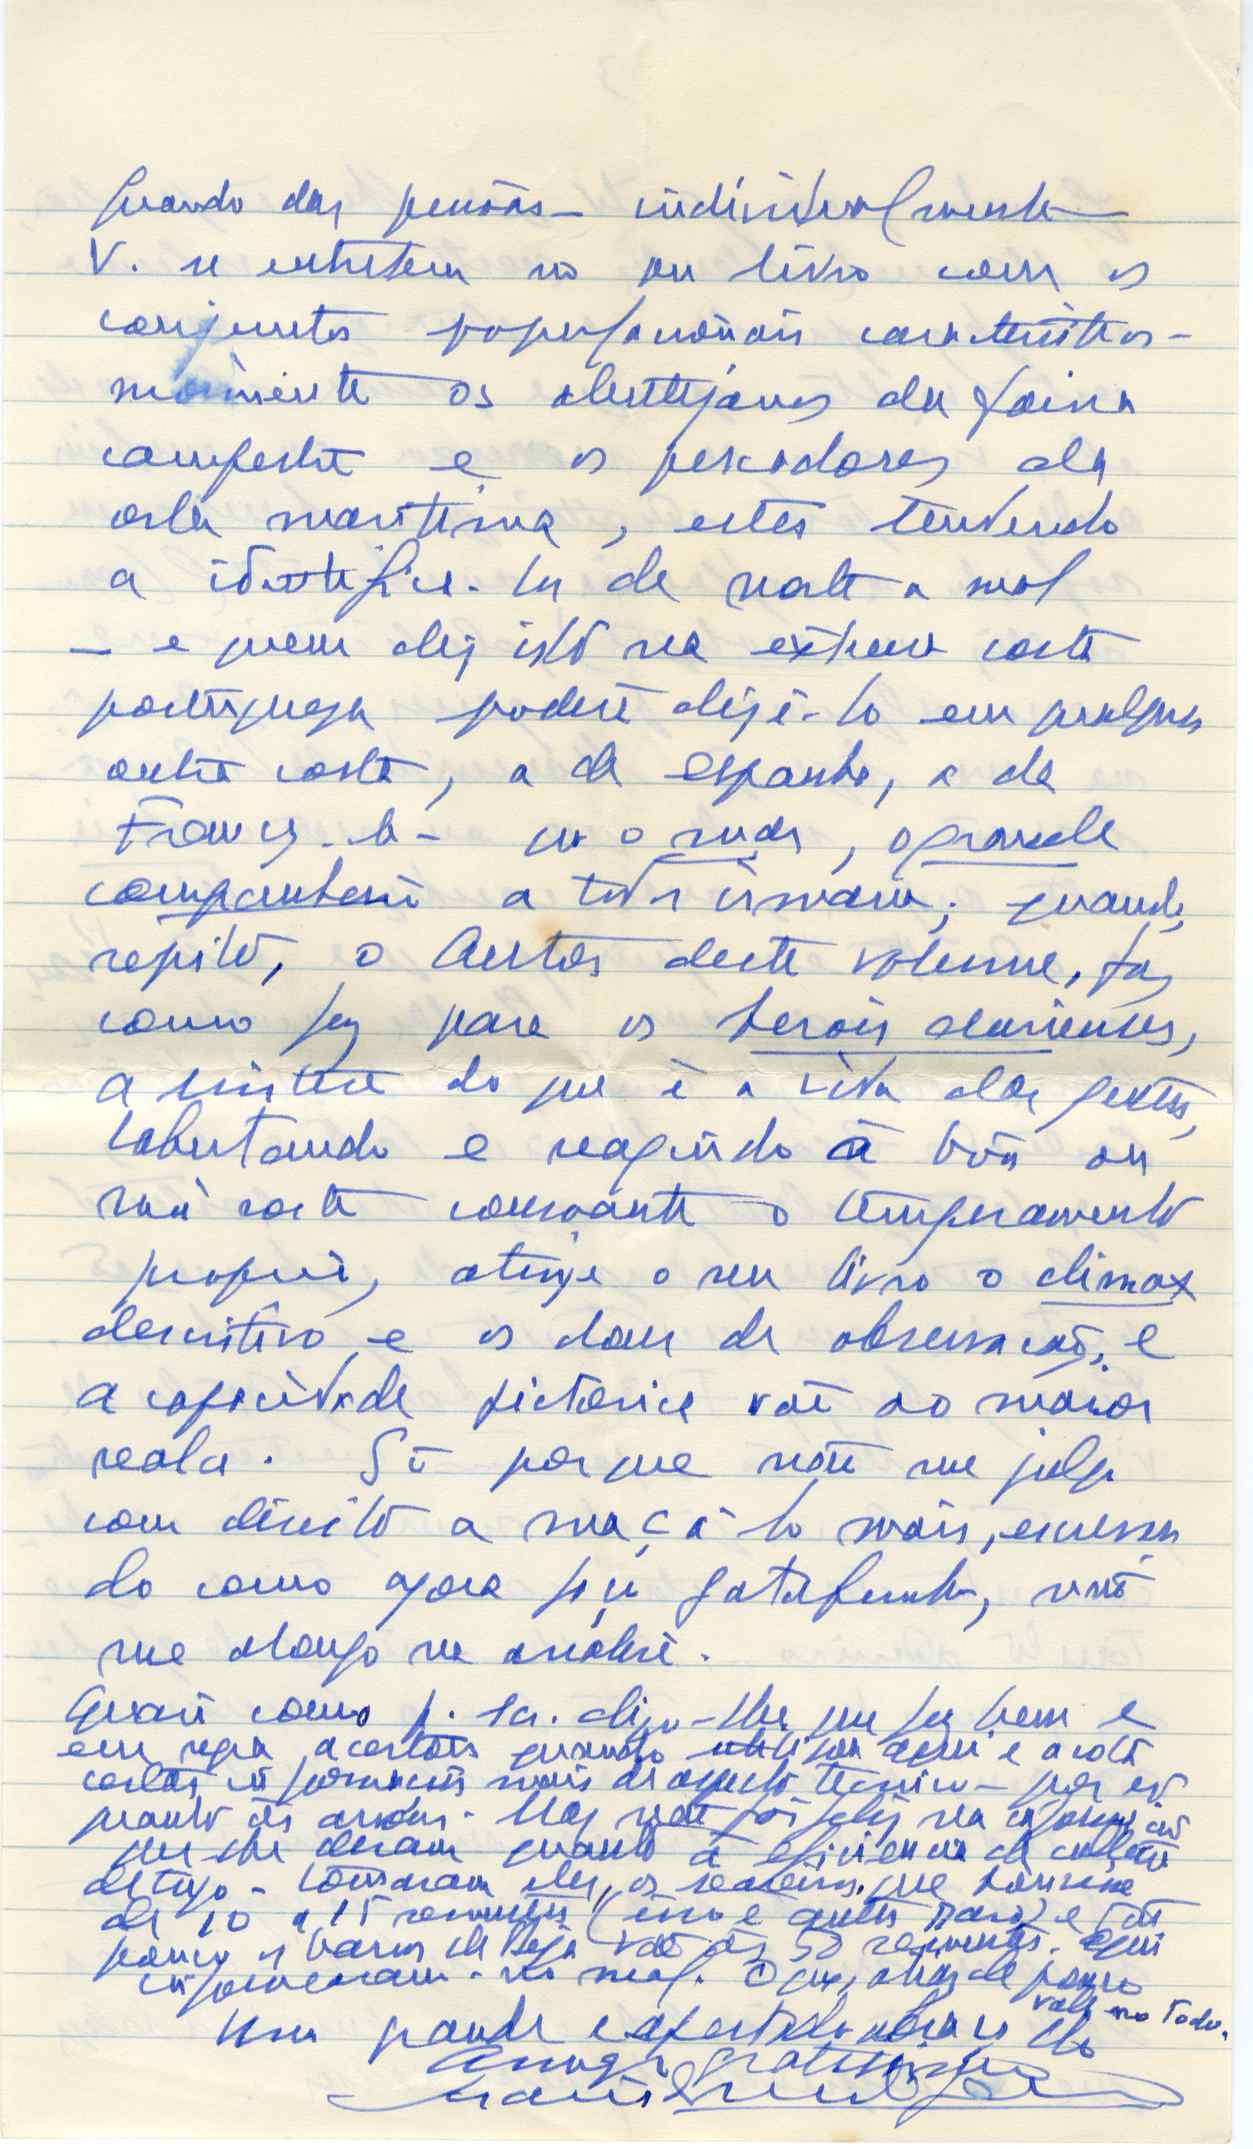 Quando das pessoas – individualmente –
V. se entretem no seu livro com os
conjuntos populacionais caracteristicos –
mòrmente os alentejanos da faina
campestre e os pescadores da
orla maritima, estes tendendo
a identificar-se de norte a sul
– e quem diz isto na extrema costa
portuguesa poderá dizê-lo em qualquer
outra costa, a da Espanha, a da
França – que o mar, o grande
companheiro a todos irmana; quando,
repito, o Autor deste volume, faz
como fez para os herois durienses,
a sintese do que é a vida das gentes,
labutando e reagindo à bôa ou
má sorte consoante o temperamento
proprio, atinge o seu livro o climax
descritivo e os dons de observação, e
a capacidade pictorica vão ao maior
realce. Só porque não me julgo
com direito a maçá-lo mais, escreven
do como agora fiz gatafunhos, não
me alongo na análise.
Quasi como p. sc. digo-lhe que fez bem e
em regra acertou quando utilisou aqui e acolá
certas informações mais de aspecto tecnico – por
quanto às Mas não foi feliz na informação
que lhe deram quanto à eficiencia da colheita
do trigo – tomaram eles, os seareiros, que houvesse
de 10 a 15 sementes (isso é antes raro) e tão
pouco os barros de Beja vão às 50 sementes. Aqui
informaram-no mal. O que, aliás de pouco
vale no todo.
Um grande e afectuoso abraço do
Amigo gratissimo